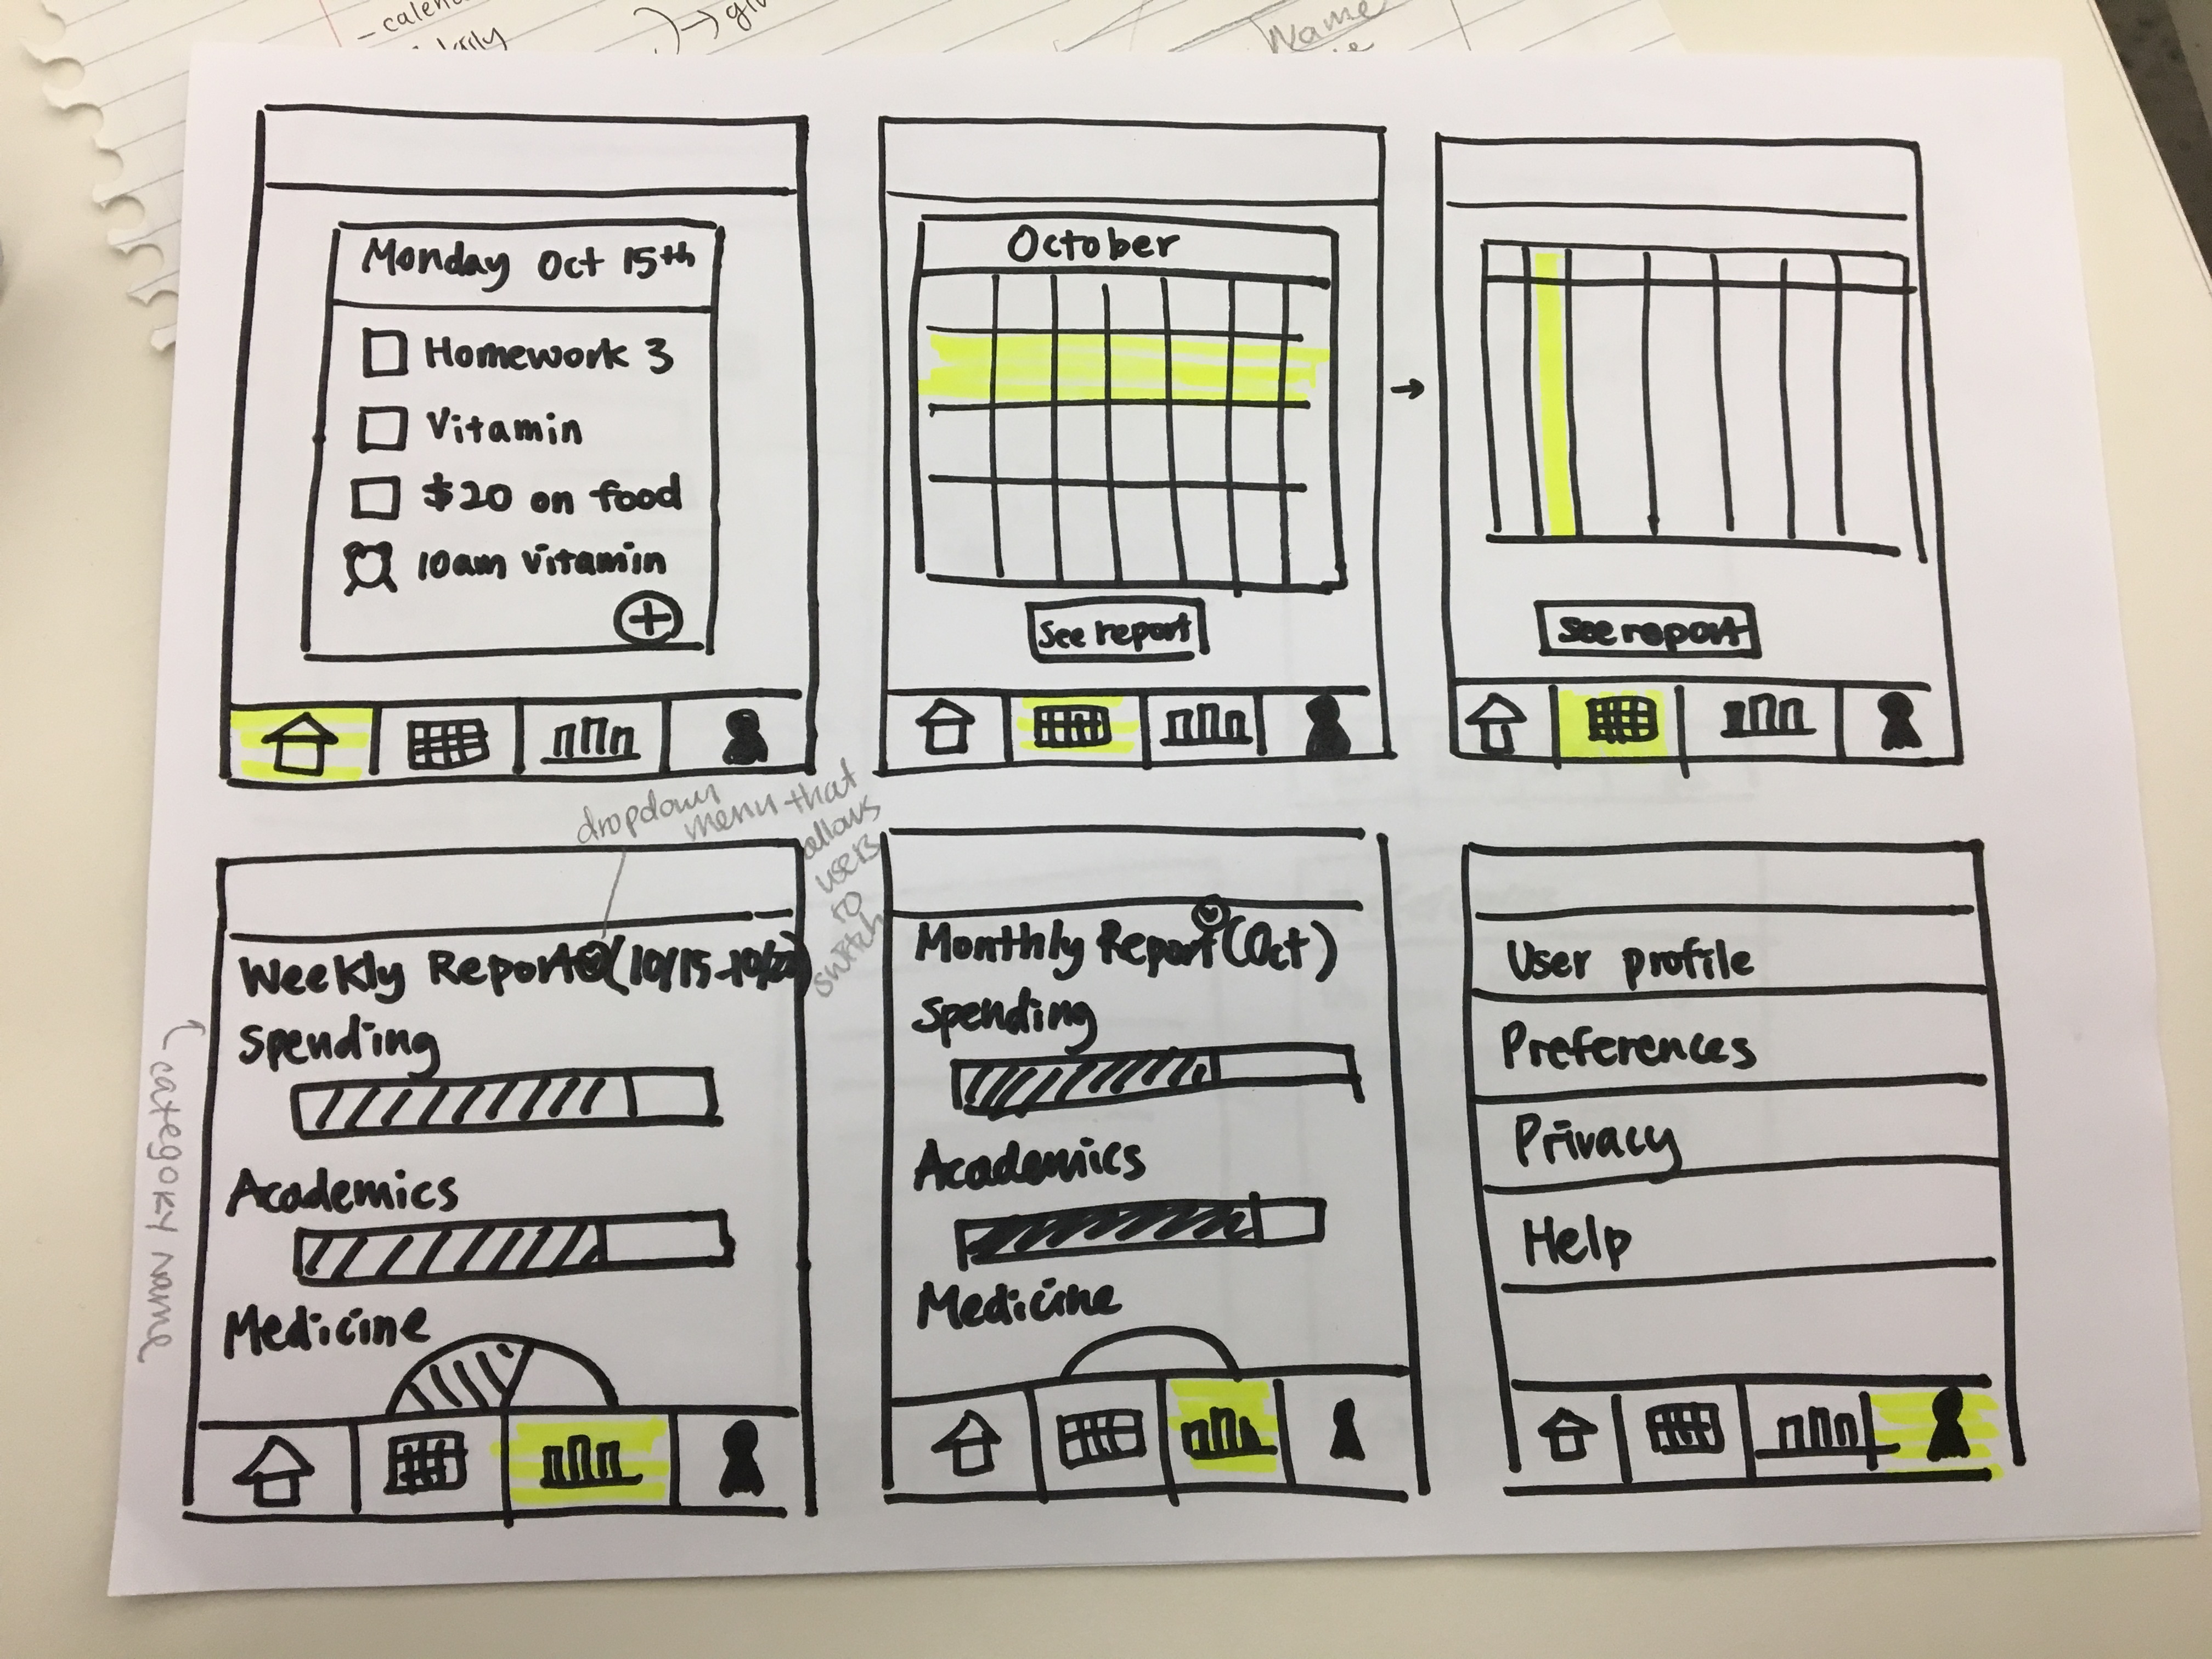 - calen
Name
Monday Oct 15th
Homework 3
Vitamin
$20 on food
10am Vitamin
October
See report
See report
dropdown
menu that
allows
users
to
switch
Weekly Report (10/15-10/22)
Spending
Academics
Medicine
category name
Monthly Report (Oct)
Spending
Academics
Medicine
User profile
Preferences
Privacy
Help